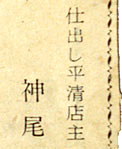 仕出し平清店主
神尾